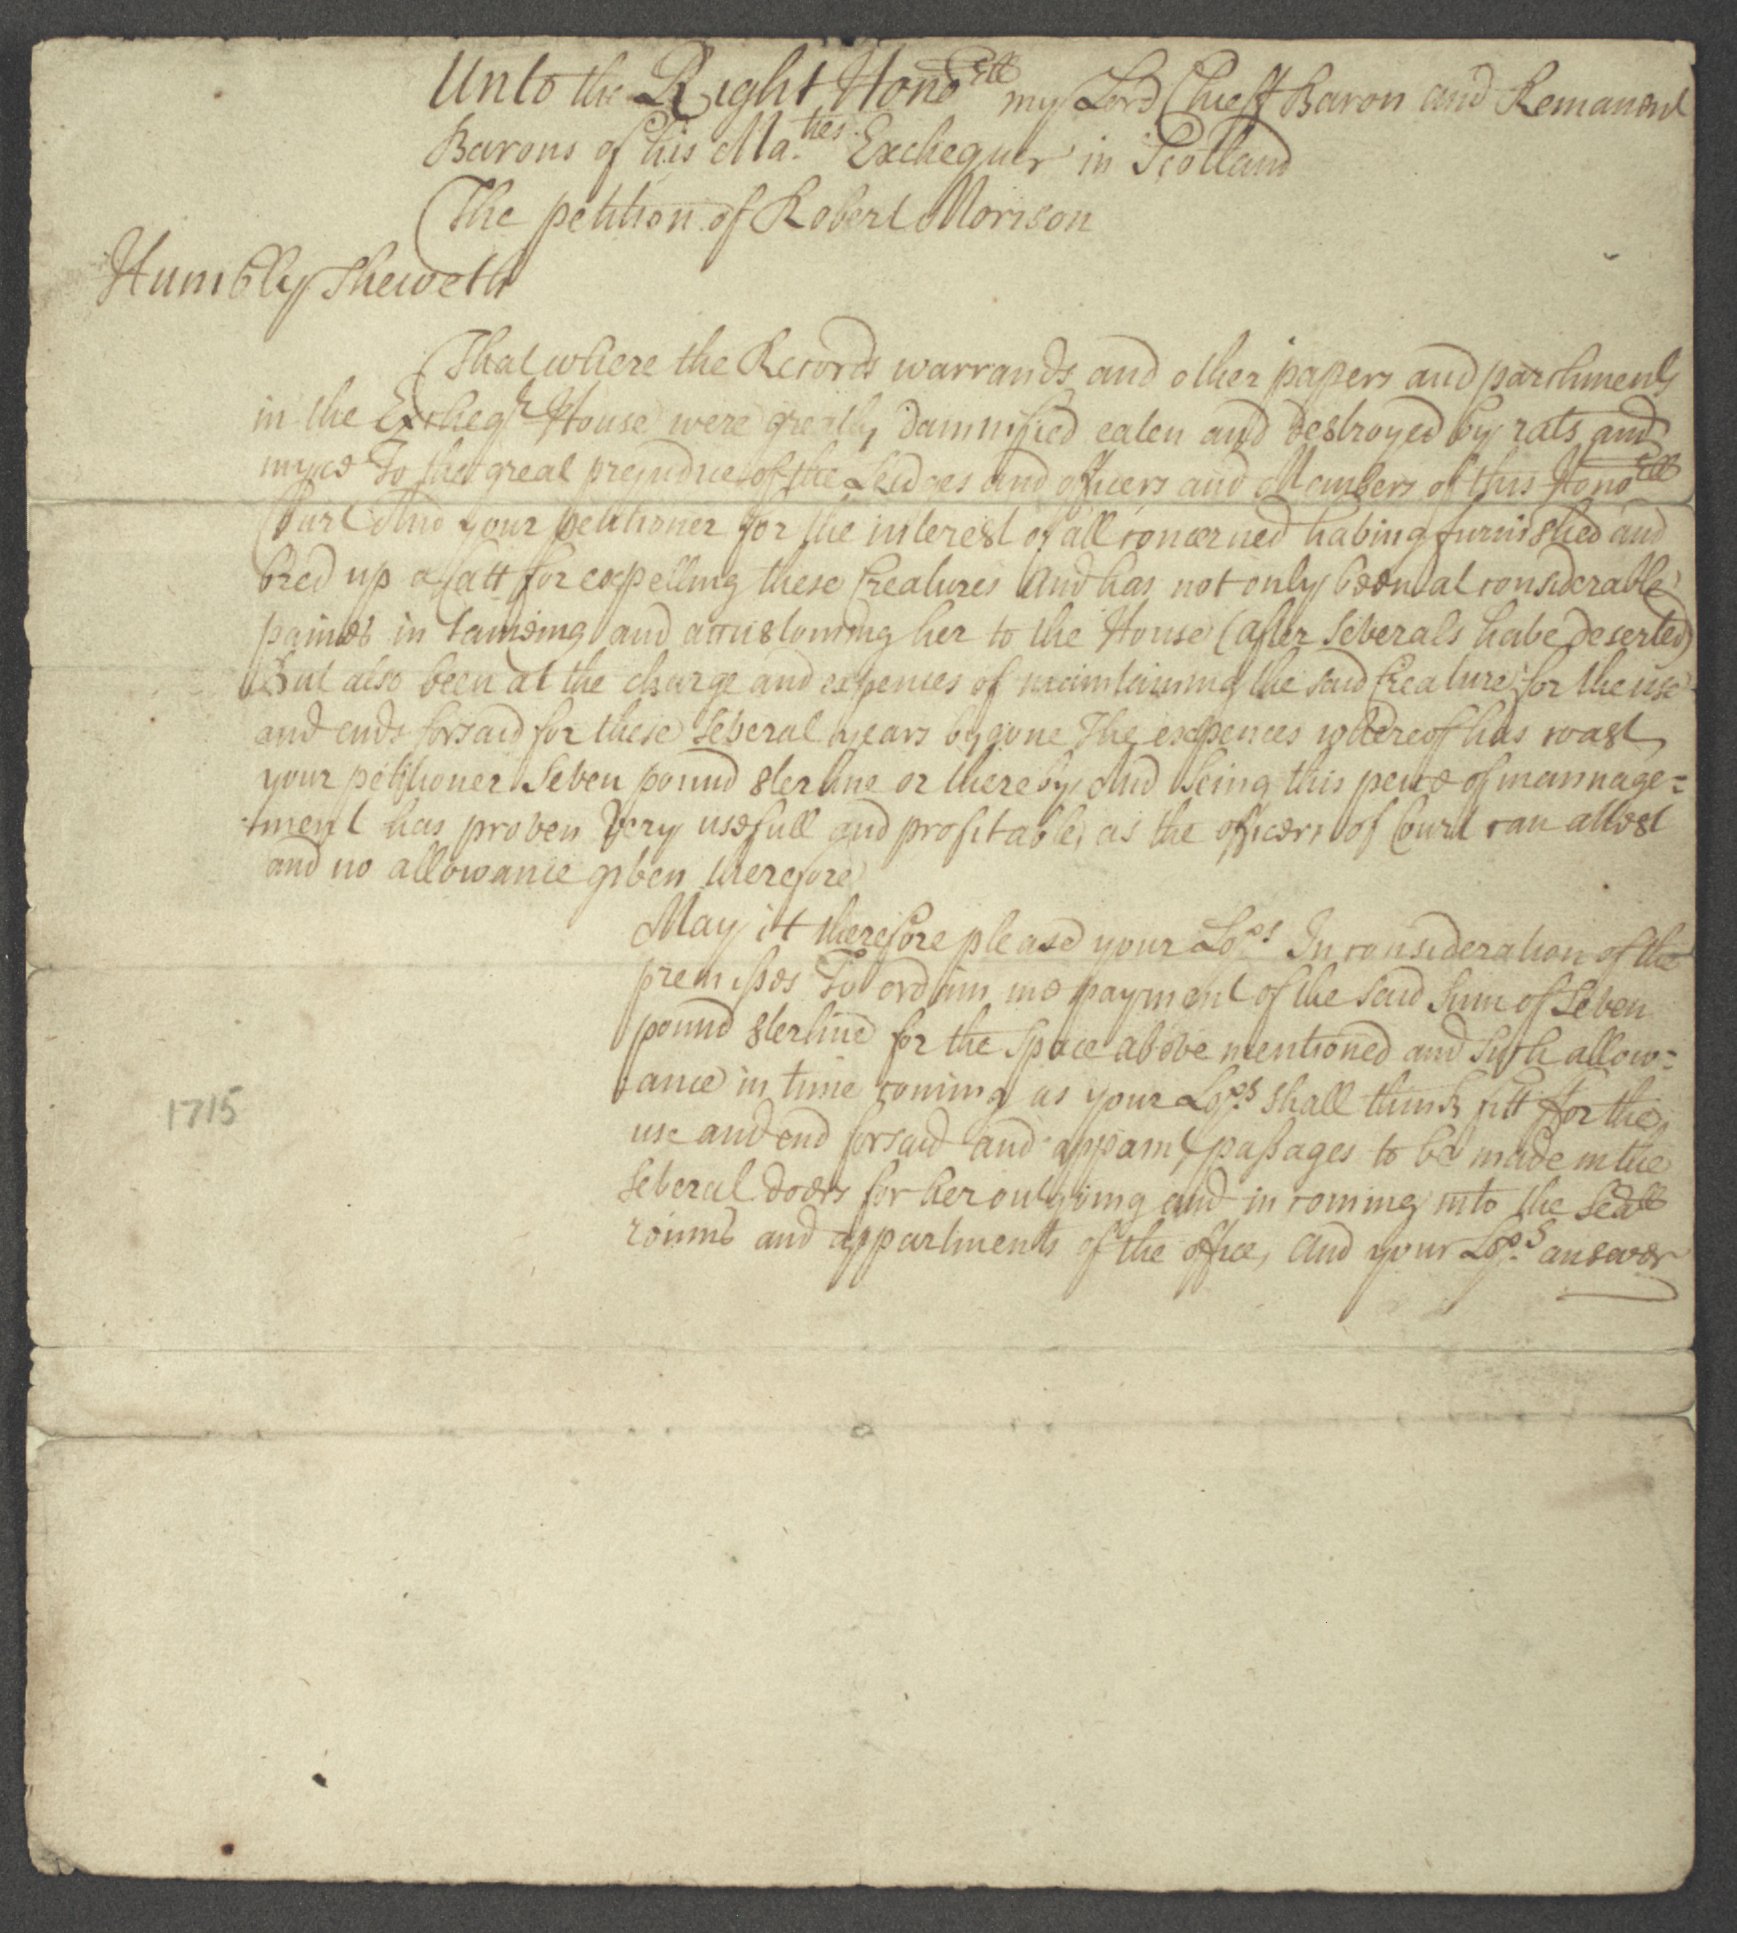 Unto the Right Honoble my Lord Chieff Baron and Remanent
Barons of his Ma.ties Exchequer in Scotland
The petition of Robert Morison
Humbly Sheweth
That where the Records warrands and other papers and parchments
in the Excheqr House were greatly damnified eaten and destroyed by rats and
myce To the great prejudice of the Leidges and officers and Members of this Honoble
Court And your petitioner for the interest of all concerned having furnished and
bred up a Catt for expelling these Creatures And has not only been at considerable
paines in tameing and accustoming her to the House (after severals have deserted)
But also been at the charge and expences of maintaining the said Creature for the use
and ends forsaid for these several years bygone The expences whereof has coast
your petitioner Seven pound sterline or thereby And being this peice of mannage=
=ment has proven very usefull and profitable, as the officers of Court can attest
and no allowance given therefore
May it therefore please your Lops In consideration of the
premisses To ordain me payment of the said Sum of Seven
pound sterline for the space above mentioned and such allow=
=ance in time coming as your Lops shall think fitt for the
use and end forsaid and appoint passages to be made in the
several doors for her outgoing and in coming into the
roums and appartments of the office, And your Lops answer
1715